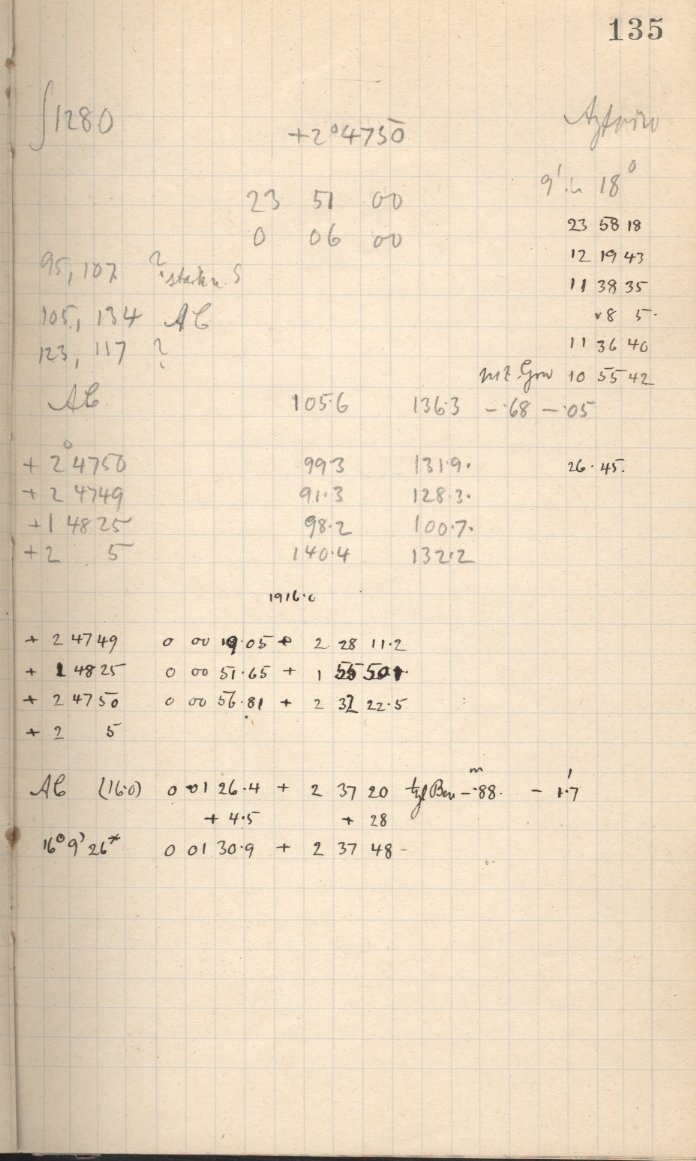 135
∫1280 +2°4750
9' in 18°
23 51 00
23 58 18
0 06 00
12 19 43
95, 107 ? stark n. S
11 38 35
105, 134 AC
8 5.
123, 117 ?
11 36 40
10 55 42
AC 105.6 136.3 -.68 -.05
+2°4750 99.3 131.9. 26.45.
+2 4749 91.3 128.3.
+1 4825 98.2 100.7.
+2 5 140.4 132.2
1916.0
+ 2 4749 0 00 19.05 + 2 28 11.2
+ 1 4825 0 00 51.65 + 1 55 50.
+ 2 4750 0 00 56.81 + 2 32 22.5
+ 2 5
AC (16.0) 0 01 26.4 + 2 37 20 tgl Bew -.88 m - 1.7'
+ 4.5 + 28
16° 9' 26* 0 01 30.9 + 2 37 48